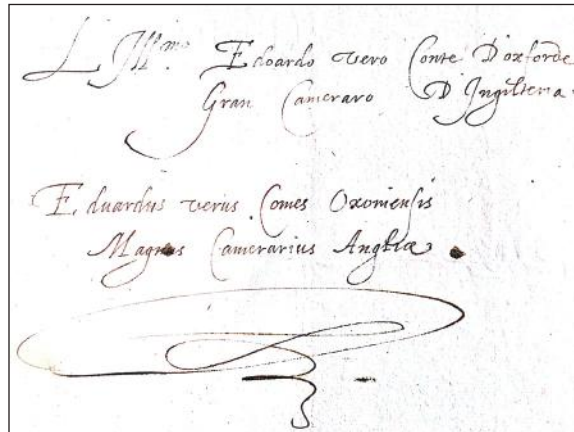 L Ill.mo Edoardo vero Conte D'oxforde
Gran Cameraro D Ingilterra
Eduardus verus Comes Oxoniensis
Magnus Camerarius Angliæ